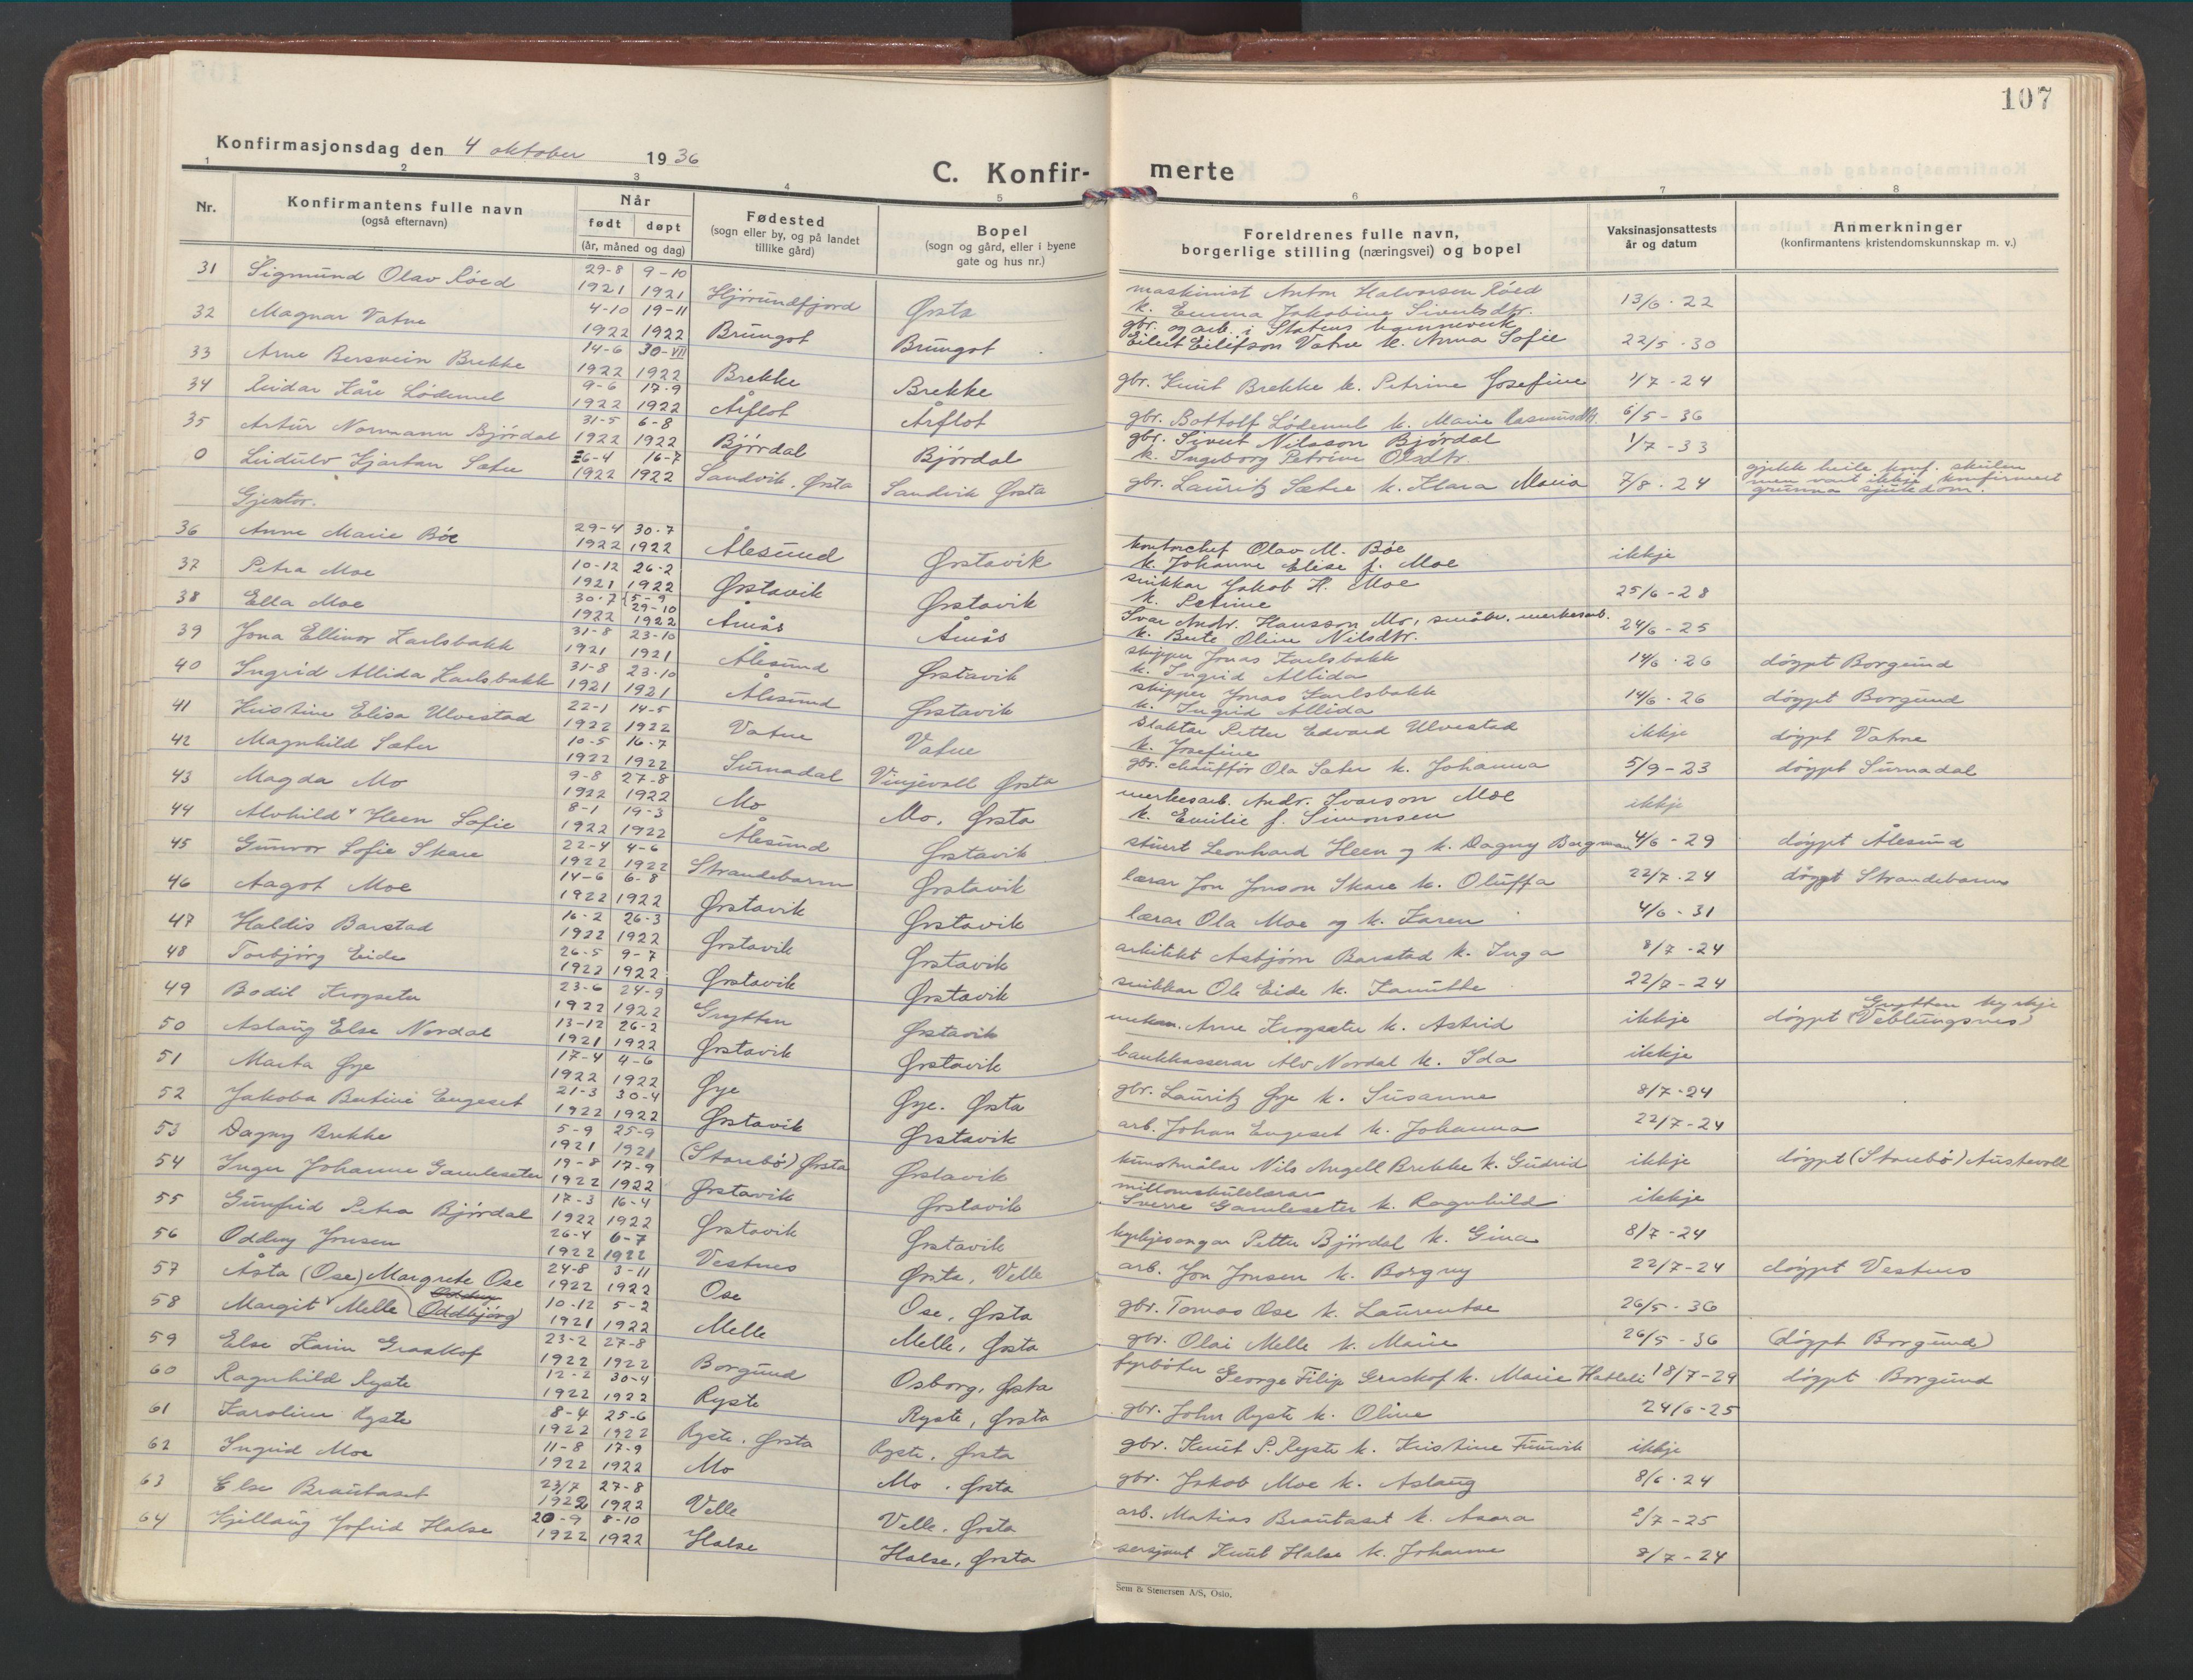 107
Konfirmasjonsdag den 4 oktober 1936
C. Konfir- merte
1 2 3 4 5 6 7 8
Nr. Konfirmantens fulle navn (også efternavn) Når født døpt (år, måned og dag) Fødested (sogn eller by, og på landet tillike gård) Bopel (sogn og gård, eller i byene gate og hus nr.) Foreldrenes fulle navn, borgerlige stilling (næringsvei) og bopel Vaksinasjonsattests år og datum Anmerkninger (konfirmantens kristendomskunnskap m. v.)
31 Sigmund Olav Røed 29-8 1921 9-10 1921 Hjørundfjord Ørsta maskinist Anton Halvorsen Røed k. Emma Jakobine Sivertsdtr. 13/6 - 22
32 Magnar Vatne 4-10 1922 19-11 1922 Brungot Brungot gbr. og arb. i Statens Eilert Eilifson Vatne k. Anna Sofie 22/5 - 30
33 Arne Bersvein Brekke 14-6 1922 30-VII 1922 Brekke Brekke gbr. Knut Brekke k. Petrine Josefine 1/7 - 24
34 Reidar Kåre Lødemel 9-6 1922 17-9 1922 Årflot Årflot gbr. Bottolf Lødemel k. Marie Rasmusdtr. 6/5 - 36
35 Artur Normann Bjørdal 31-5 1922 6-8 1922 Bjørdal Bjørdal gbr. Sivert Nilsson Bjørdal k. Ingeborg Petrine Olsdtr. 1/7 - 33
0 Leidulv Kjartan Sætre 26-4 1922 16-7 1922 Sandvik, Ørsta Sandvik Ørsta gbr. Lauritz Sætre k. Klara Maria 7/8 - 24 gjekk heile konf. skulen men vart ikkje konfirmert grunna sjukedom.
Gjentor.
36 Anne Marie Bøe 29-4 1922 30-7 1922 Ålesund Ørstavik kontorchef Olav M. Bøe k. Johanne Elise f. Moe ikkje
37 Petra Moe 10-12 1921 26-2 1922 Ørstavik Ørstavik snikkar Jakob H. Moe k. Petrine 25/6 - 28
38 Ella Moe 30-7 1922 5-9 29-10 1922 Åmås Åmås Ivar Andr. Hansson Mo, småbr. merkesarb. k. Berte Oline Nilsdtr. 24/6 - 25
39 Jona Ellinor Karlsbakk 31-8 1921 23-10 1921 Ålesund Ørstavik skipper Jonas Karlsbakk k. Ingrid Allida 14/6 - 26 døypt Borgund
40 Ingrid Allida Karlsbakk 31-8 1921 23-10 1921 Ålesund Ørstavik skipper Jonas Karlsbakk k. Ingrid Allida 14/6 - 26 døypt Borgund
41 Kristine Elisa Ulvestad 22-1 1922 14-5 1922 Vatne Vatne Slaktar Petter Edvard Ulvestad k. Josefine ikkje døypt Vatne
42 Magnhild Sæter 10-5 1922 16-7 1922 Surnadal Vinjevoll Ørsta gbr. chauffør Ola Sæter k. Johanna 5/9 - 23 døypt Surnadal
43 Magda Mo 9-8 1922 27-8 1922 Mo Mo, Ørsta merkesarb. Andr. Ivarson Moe k. Emilie f. Simonsen ikkje
44 Alvhild Heen Sofie 8-1 1922 19-3 1922 Ålesund Ørstavik stuert Leonhard Heen og k. Dagny Borgman 4/6 - 29 døypt Ålesund
45 Gunvor Sofie Skare 22-4 1922 4-6 1922 Strandebarm Ørstavik lærar Jon Jonson Skare k. Oluffa 22/7 - 24 døypt Strandebarm
46 Aagot Moe 14-6 1922 6-8 1922 Ørstavik Ørstavik lærar Ola Moe og k. Karen 4/6 - 31
47 Haldis Barstad 16-2 1922 26-3 1922 Ørstavik Ørstavik arkitekt Asbjørn Barstad k. Inga 8/7 - 24
48 Torbjørg Eide 26-5 1922 9-7 1922 Ørstavik Ørstavik snikkar Ole Eide k. Kanutte 22/7 - 24
49 Bodil Krogseter 23-6 1922 24-9 1922 Grytten Ørstavik mekan. Arne Krogsæter k. Astrid ikkje døypt Grytten kyrkje (Veblungsnes)
50 Aslaug Else Nordal 13-12 1921 26-2 1922 Ørstavik Ørstavik bankkasserar Alv Nordal k. Ida ikkje
51 Marta Øye 17-4 1922 4-6 1922 Øye Øye. Ørsta gbr. Lauritz Øye k. Susanne 8/7 - 24
52 Jakoba Bertine Engeset 21-3 1922 30-4 1922 Ørstavik Ørstavik arb. Johan Engeset k. Johanna 22/7 - 24
53 Dagny Brekke 5-9 1921 25-9 1921 (Storebø) Ørsta Ørstavik kunstmålar Nils Angell Brekke k. Gudrid ikkje døypt (Storebø) Austevoll
54 Inger Johanne Gamleseter 19-8 1922 17-9 1922 Ørstavik Ørstavik millomskulelærar Sverre Gamleseter k. Ragnhild ikkje
55 Gunfrid Petra Bjørdal 17-3 1922 16-4 1922 Ørstavik Ørstavik kyrkjesongar Petter Bjørdal k. Gina 8/7 - 24
56 Oddny Jonsen 26-4 1922 6-7 1922 Vestnes Ørsta, Velle arb. Jon Jonsen k. Borgny 22/7 - 24 døypt Vestnes
57 Åsta (Ose) Margrete Ose 24-8 1922 3-11 1922 Ose Ose, Ørsta gbr. Tomas Ose k. Laurentse 26/5 - 36
58 Margit Melle (Oddbjørg) 10-12 1921 5-2 1922 Melle Melle, Ørsta gbr. Olai Melle k. Marie 26/5 - 36 (døypt Borgund)
59 Else Karin Graskof 23-2 1922 27-8 1922 Borgund Osborg, Ørsta fyrbøter George Filip Graskof k. Marie Hatleli 18/7 - 29 døypt Borgund
60 Ragnhild Ryste 12-2 1922 30-4 1922 Ryste Ryste, Ørsta gbr. John Ryste k. Oline 24/6 - 25
61 Karoline Ryste 8-4 1922 25-6 1922 Ryste, Ørsta Ryste, Ørsta gbr. Knut P. Ryste k. Kristine ikkje
62 Ingrid Moe 11-8 1922 17-9 1922 Mo Mo, Ørsta gbr. Jakob Moe k. Aslaug 8/6 - 24
63 Else Brautaset 23/7 1922 27-8 1922 Velle Velle, Ørsta arb. Matias Brautaset k. Asora 2/7 - 25
64 Kjellaug Jofrid Halse 20-9 1922 8-10 1922 Halse Halse, Ørsta sersjant Knut Halse k. Johanne 8/7 - 24
Sem & Stenersen A/S, Oslo.